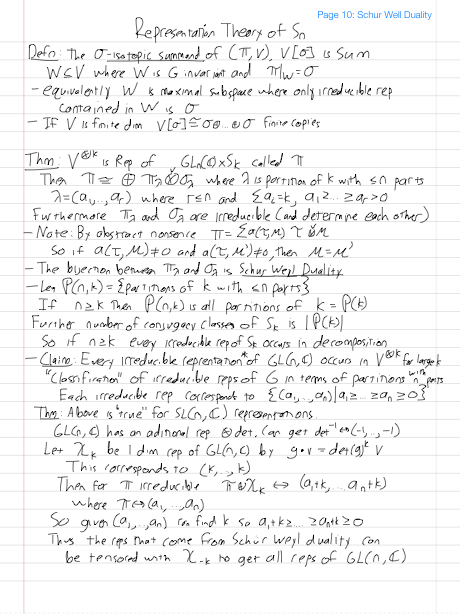 Page 10: Schur Well Duality
Representation Theory of Sn
Defn: The σ-isotopic summand of (π,V), V[σ] is Sum
W⊆V where W is G invariant and π|_W=σ
- equivalently W is maximal subspace where only irreducible rep
contained in W is σ
- If V is finite dim V[σ]≅σ⊕...⊕σ finite copies
Thm: V^{⊗k} is Rep of GLn(C)×Sk called π
Then π≅ ⊕ πλ⊗σλ where λ is partition of k with ≤n parts
λ=(a₁,...,ar) where r≤n and Σai=k, a₁≥...≥ar>0
Furthermore πλ and σλ are irreducible (and determine each other)
- Note: By abstract nonsence π=Σa(τ,μ) τ⊗μ
So if a(τ,μ)≠0 and a(τ,μ')≠0, then μ=μ'
- The bijection between πλ and σλ is Schur Weyl Duality
- Let P(n,k)={partitions of k with ≤n parts}
If n≥k then P(n,k) is all partitions of k = P(k)
Further number of conjugacy classes of Sk is |P(k)|
So if n≥k every irreducible rep of Sk occurs in decomposition
- Claim: Every irreducible reprentation* of GL(n,C) occurs in V^{⊗k} for large k
"Classification" of irreducible reps of G in terms of partitions with n parts
Each irreducible rep corresponds to {(a₁,...,an)|a₁≥...≥an≥0}
Thm: Above is "true" for SL(n,C) representations.
GL(n,C) has an aditional rep ⊗det, Can get det⁻¹↔(-1,...,-1)
Let χk be 1 dim rep of GL(n,C) by g∘v=det(g)^k v
This corresponds to (k,...,k)
Then for π irreducible π⊗χk ↔ (a₁+k,...an+k)
where π↔(a₁,...,an)
So given (a₁,...,an) can find k so a₁+k≥...≥an+k≥0
Thus the reps that come from Schur Weyl duality can
be tensored with χ-k to get all reps of GL(n,C)